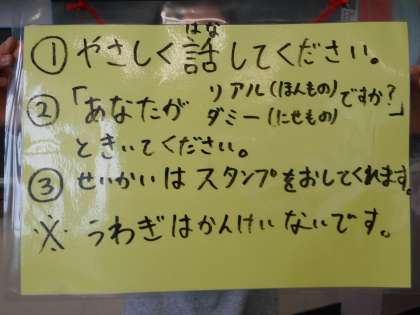 ① やさしく話してください。
はな
② 「あなたが リアル(ほんもの) ダミー(にせもの) ですか?」
ときいてください。
③ せいかいは スタンプをおしてくれます。
※ うわぎはかんけいないです。